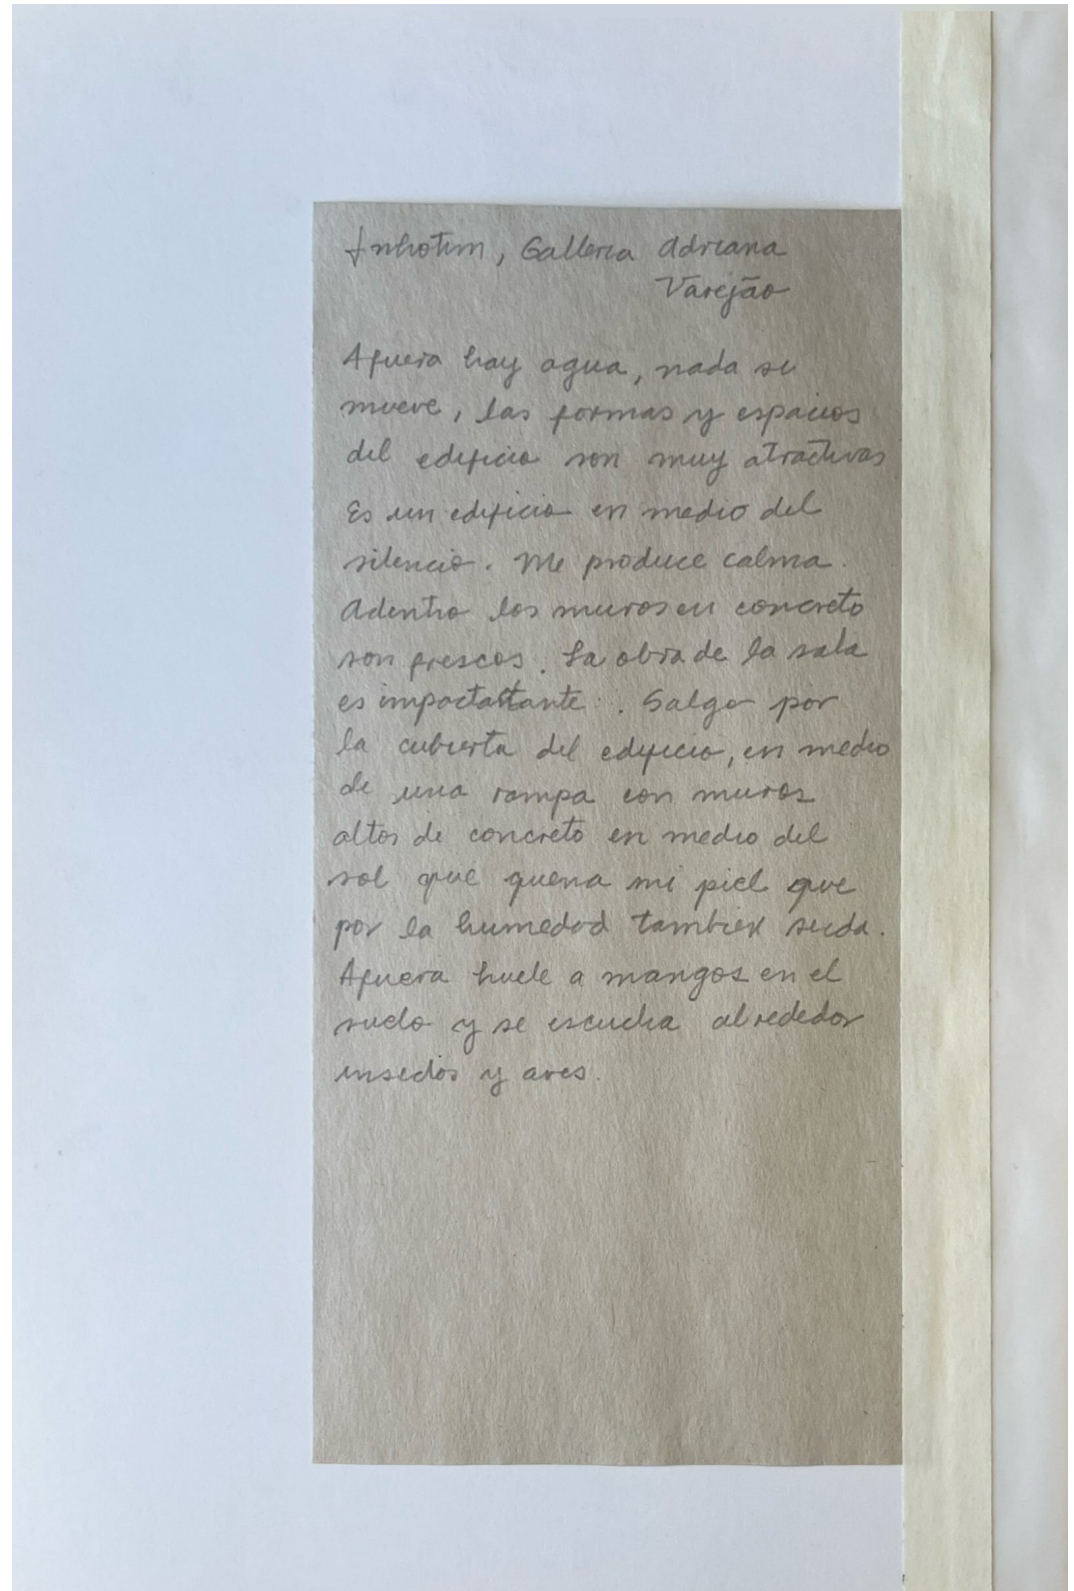 Inhotim, Galleria Adriana
Varejão
Afuera hay agua, nada se
mueve, las formas y espacios
del edificio son muy atractivas
Es un edificio en medio del
silencio. Me produce calma.
Adentro los muros en concreto
son frescos. La obra de la sala
es impactante. Salgo por
la cubierta del edificio, en medio
de una rampa con muros
altos de concreto en medio del
sol que quema mi piel que
por la humedad tambien suda.
Afuera huele a mangos en el
suelo y se escucha alrededor
insectos y aves.